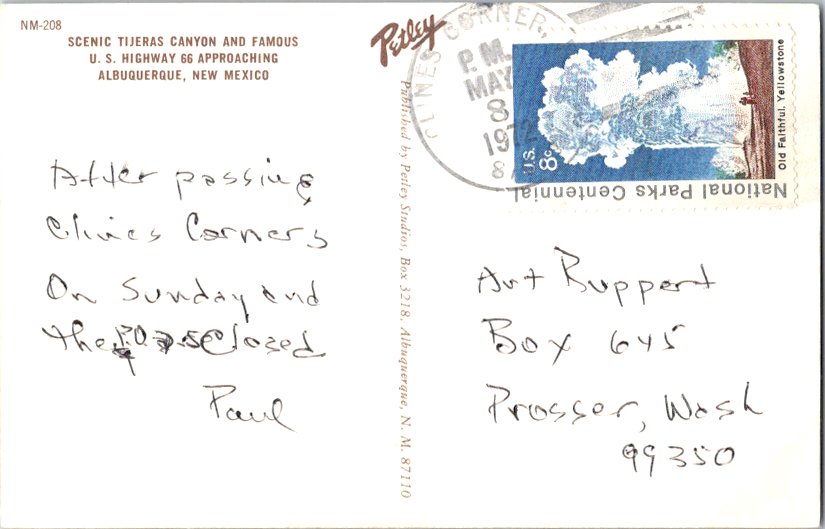 NM-208
SCENIC TIJERAS CANYON AND FAMOUS
U. S. HIGHWAY 66 APPROACHING
ALBUQUERQUE, NEW MEXICO
After passing
Clines Corners
On Sunday and
the P.O. is Closed
Paul
Petley
Published by Petley Studios, Box 3218, Albuquerque, N. M. 87110
CLINES CORNER,
P.M.
MAY
8
1972
87
Old Faithful, Yellowstone
U.S. 8c
National Parks Centennial
Art Ruppert
Box 645
Prosser, Wash
99350